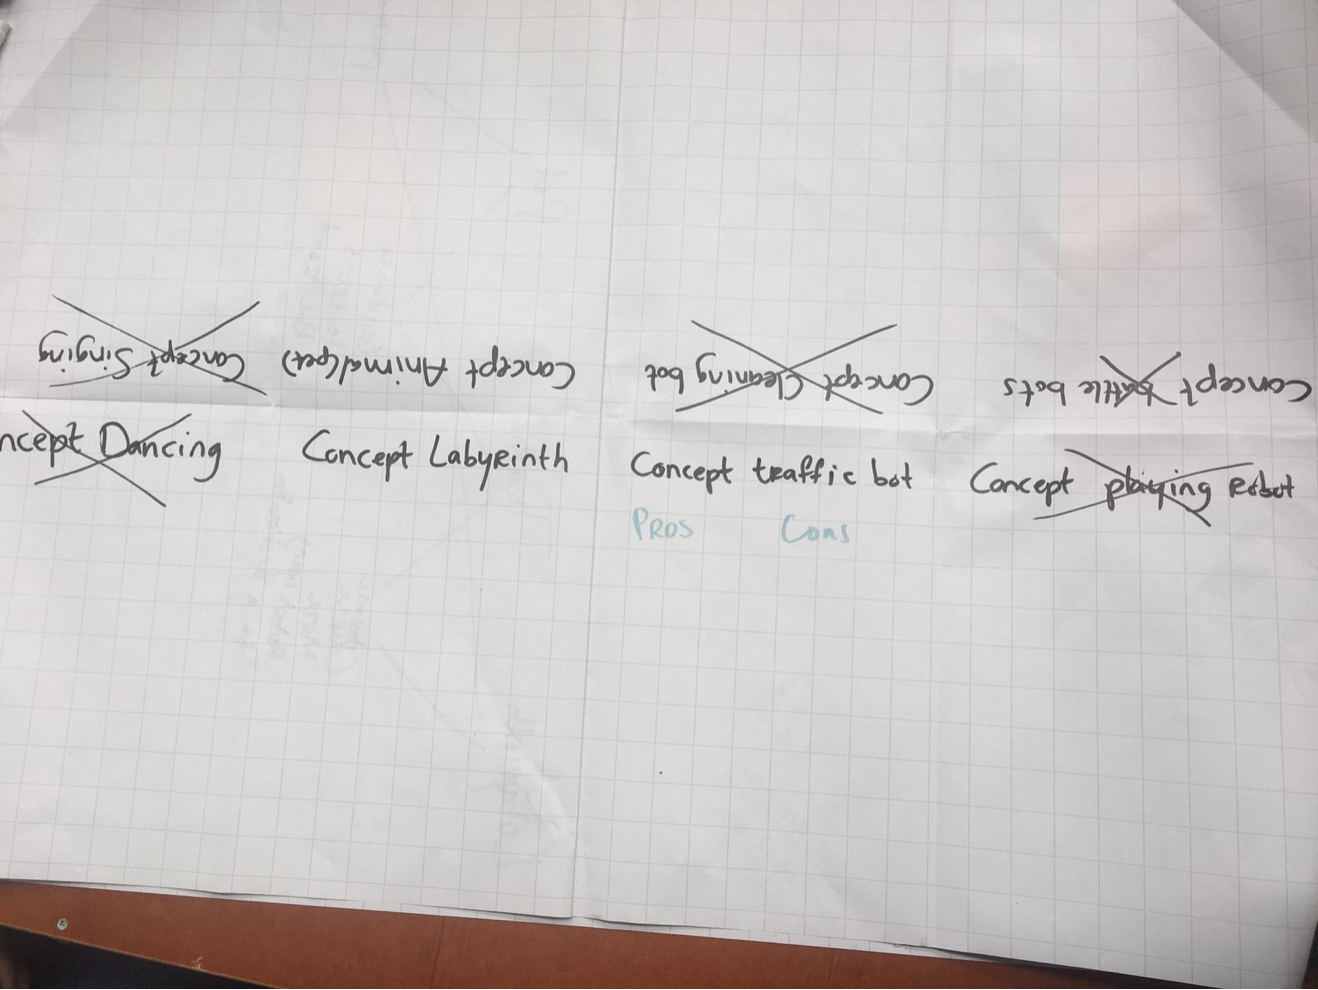 Concept Singing
Concept Animal(pet)
Concept Cleaning bot
Concept battle bots
ncept Dancing
Concept Labyrinth
Concept traffic bot
Concept playing Robot
PROS
Cons